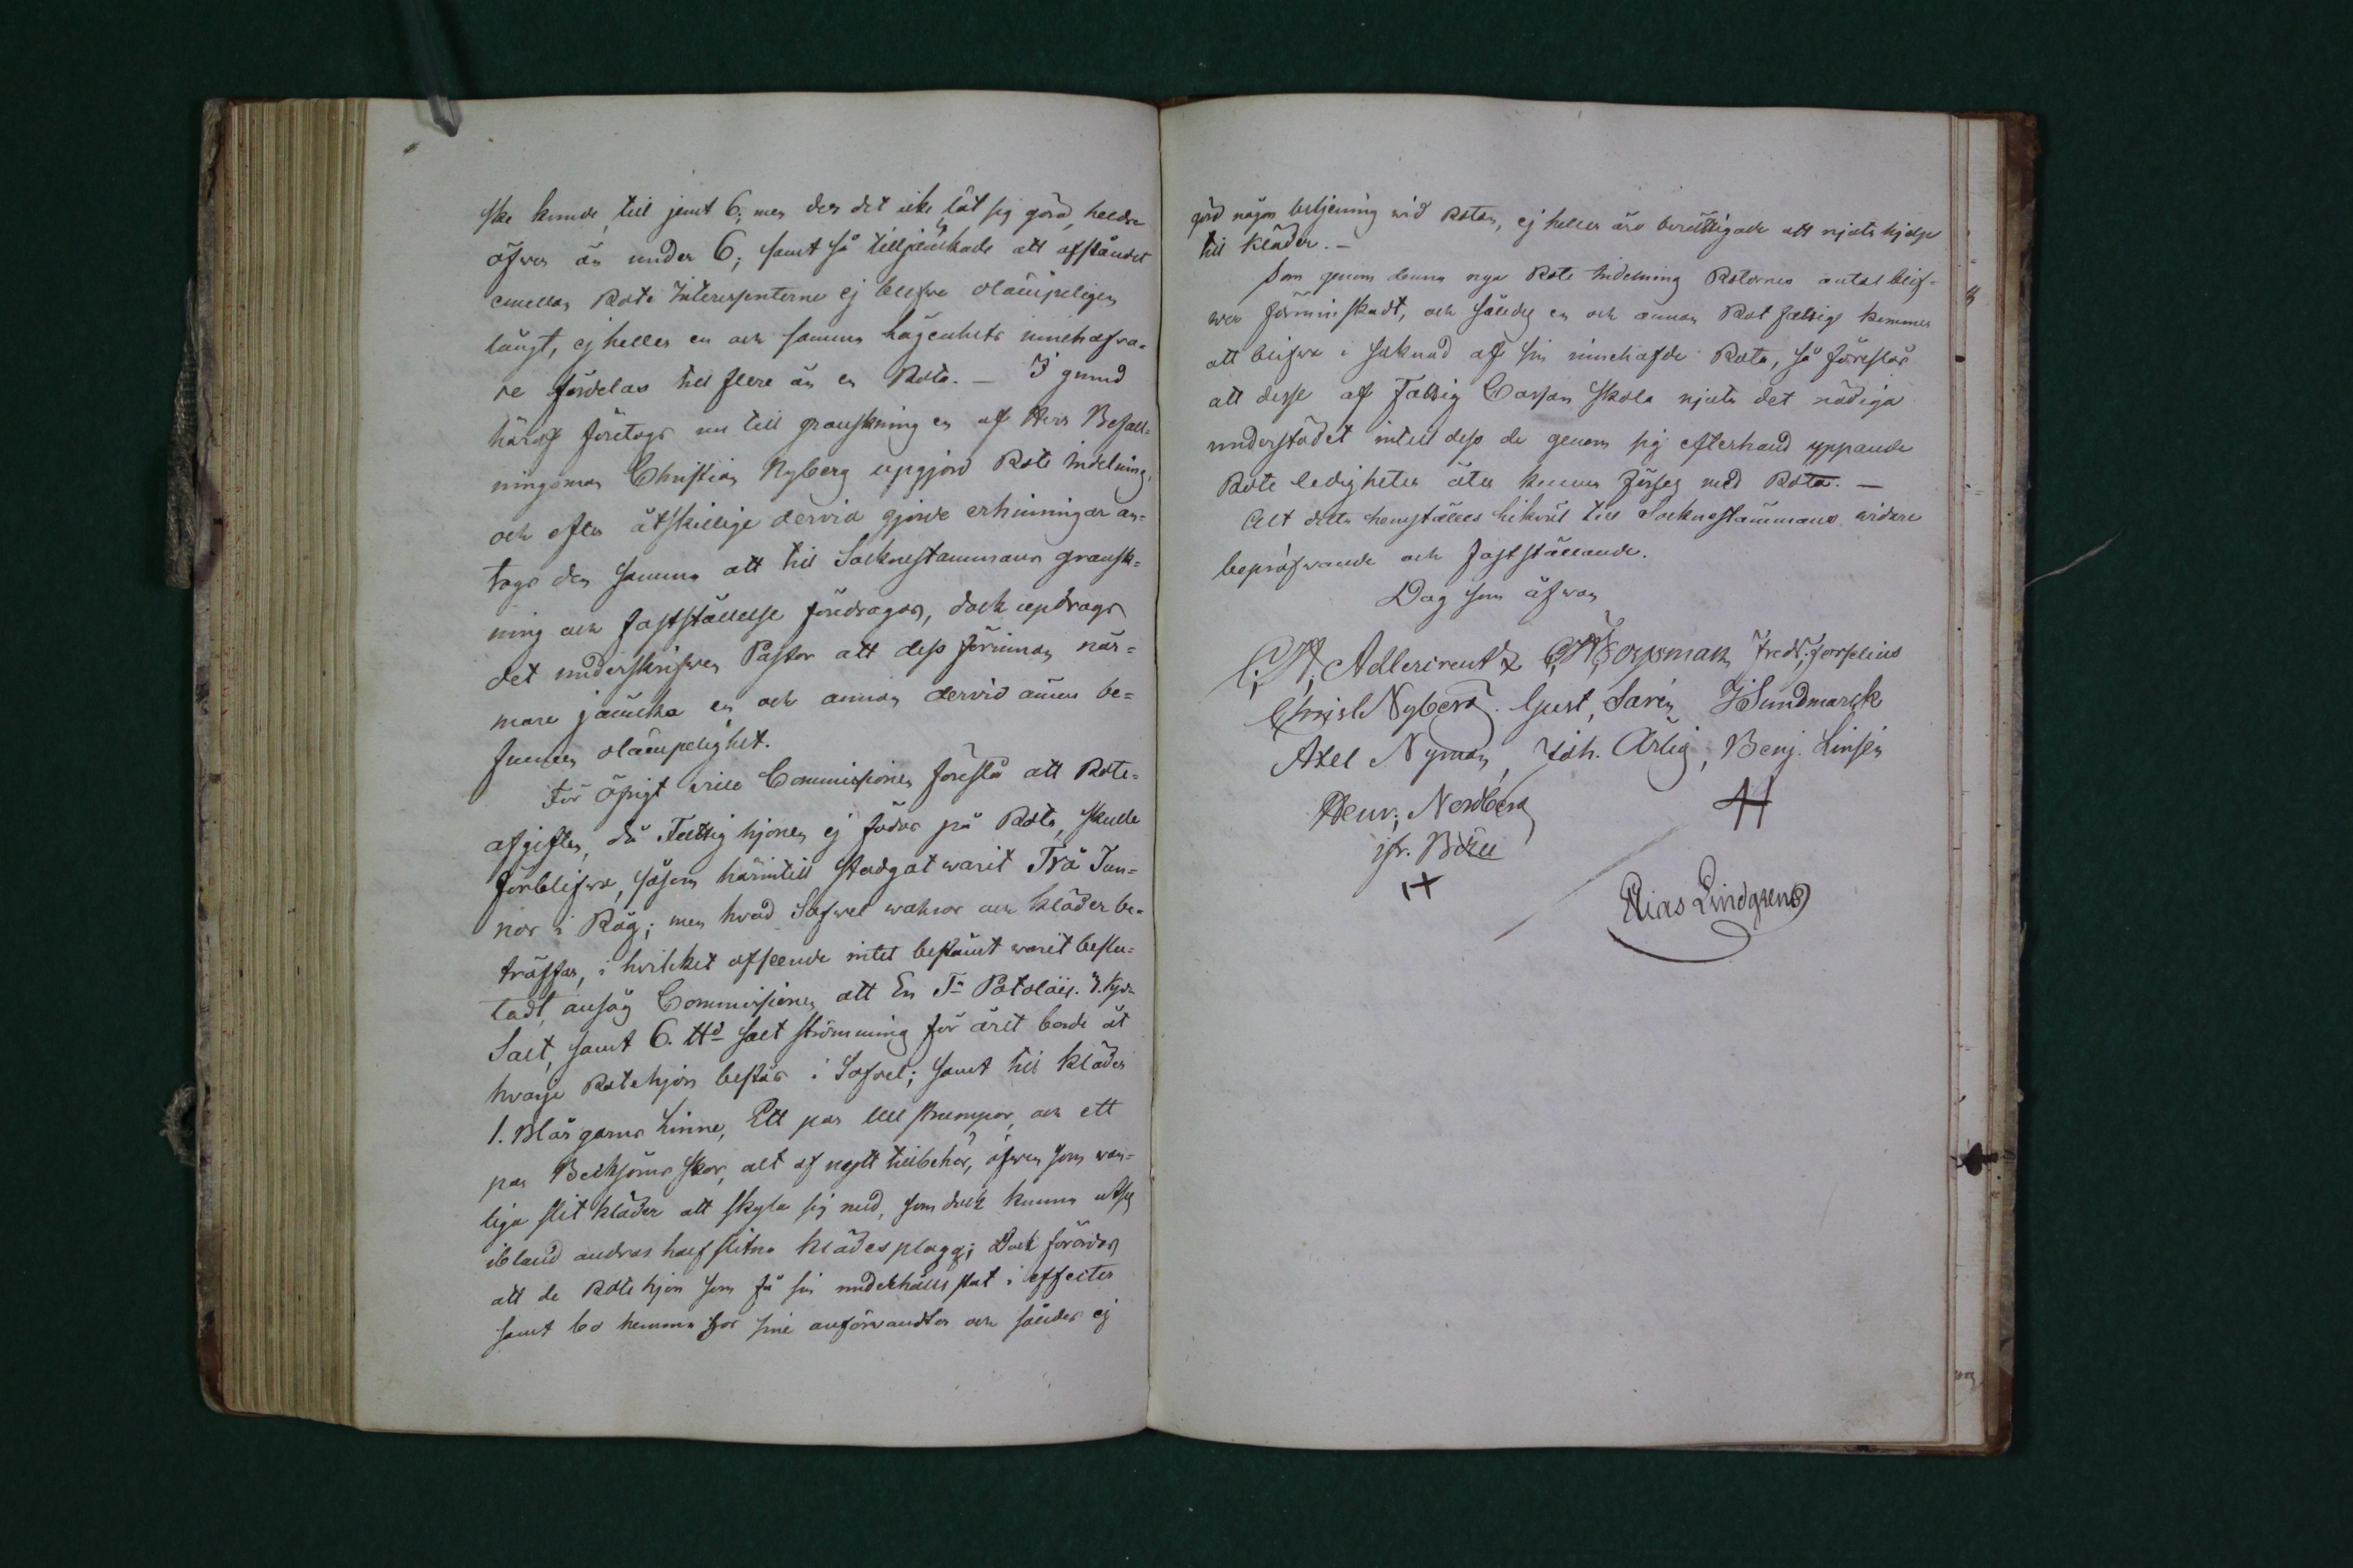 ske kunde, till jemt 6; men der det icke låt sig göra, heldre
öfwer än under 6; samt så tilljämkade att afståndet
emellan Rote Interessenterne ej blefwe olämpeligen
långt, ej heller en och samma lägenhets innehafwa-
re fördelas till flere än en Rota. — I grund
häraf företogs nu till granskning en af Herr Befall-
ningsman Christian Nyberg upgjord Rote Indelning,
och efter åtskillige dervid gjorde erhinringar an-
togs den samma att till Socknestämmans gransk-
ning och fastställelse föredragas, dock updrogs
det underskrifwen Pastor att dess förinnan när-
mare jämka en och annan dervid ännu be-
funnen olämpelighet.
För öfrigt wille Commissionen föreslå att Rote-
afgiften, då Fattighjonen ej födas på Rota, skulle
förblifwa, såsom härintill stadgat warit Två Tun-
nor i Råg; men hvad Sofwel wahror och kläder be-
träffar, i hvilket afseende intet bestämt warit beslu-
tadt, ansåg Commissionen att En Ta Potatäer.
Salt, samt 6. ttd salt strömming för året borde åt
hvarje Rotehjon bestås i Sofvel; samt till kläder
1. Blårgarns Linne, Ett par Ull strumpor, och ett
par Becksöms skor, alt af nytt tillbehör, äfwen som wan-
liga slit kläder att skyla sig med, som dock kunna utses
ibland andras half slitna klädesplagg; Dock förordas
att de Rotehjon som få sin underhålls stat i effecter
samt bo hemma hos sine anförwandter och således ej
göra någon betjening wid Rotan, ej heller äro berättigade att njuta hjelp
till kläder. —
Som genom denna nya Rote Indelning Rotornes antal blif-
wer förminskadt, och således en och annan Rot fattige kommer
att blifwa i saknad af sin innehafde Rota, så föreslås
att desse af Fattig Cassan skola njuta det nödiga
understödet intill dess de genom sig efterhand yppande
Rote ledigheter åter kunna förses med Rota. —
Alt detta hemställes likväl till Socknestämmans widare
bepröfwande och fastställande.
Dag som ofwan
C; H; Adlercreutz Forssman Fredr; Forselius
Christ Nyberg. Gust, Sarén J Sundmarck
Axel Nyman, Joh. Ärlig, Benj. Linsén
Henr; Nordberg
Elias Lindgren